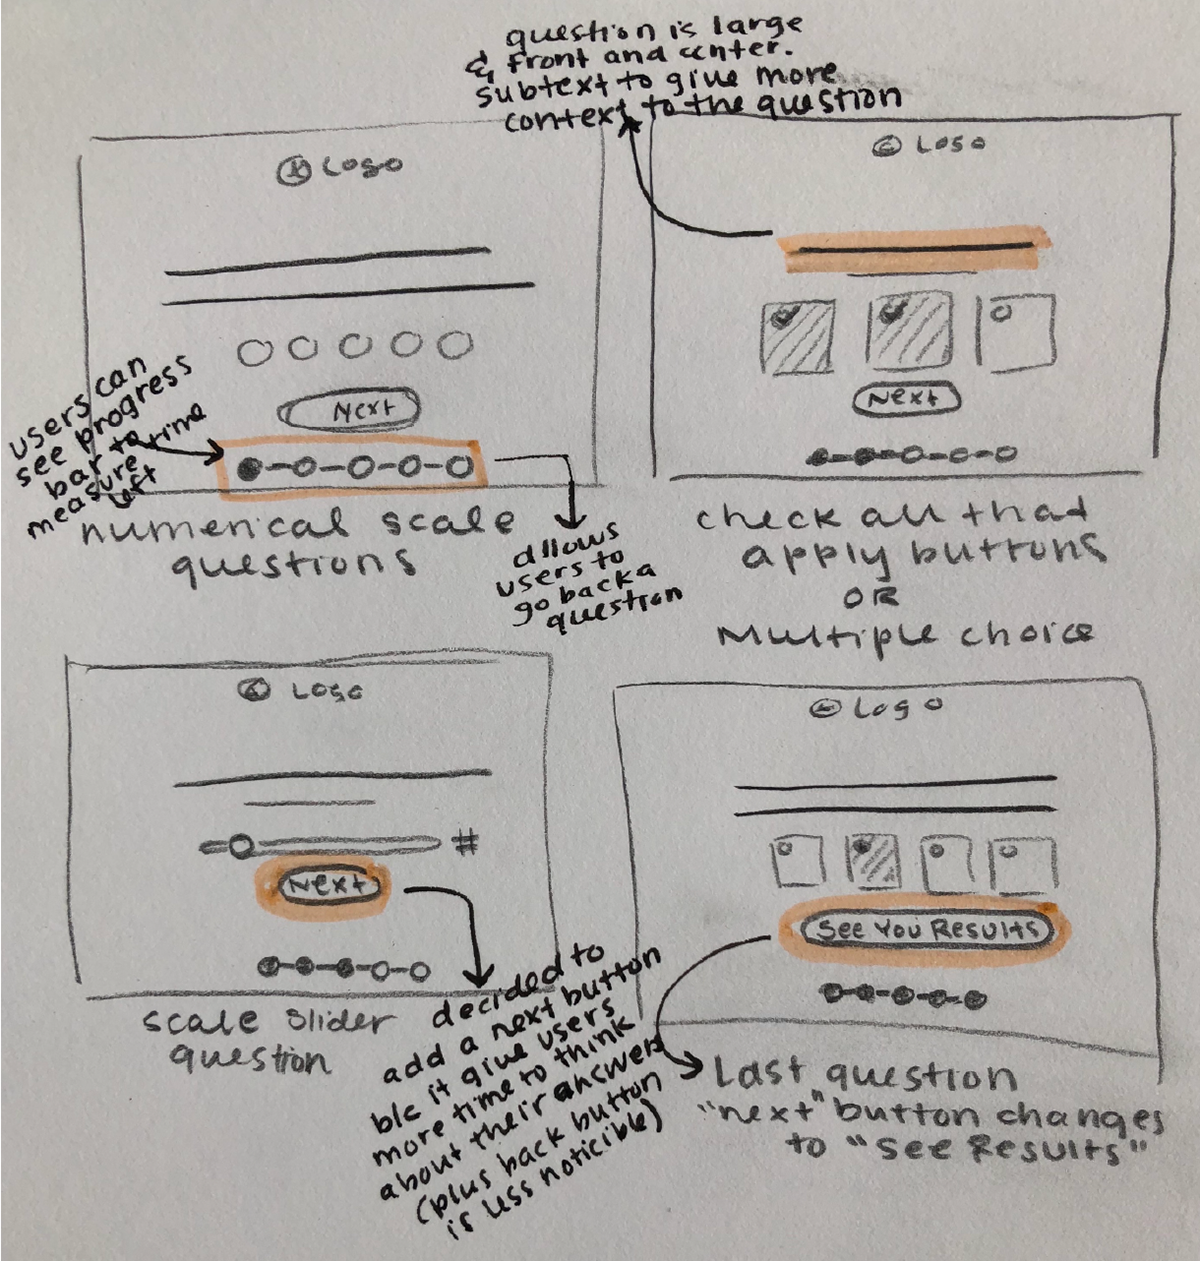 question is large
& front and center.
subtext to give more
context to the question
Logo
Next
users can
see progress
bar to time
measure
left
numerical scale
questions
allows
users to
go back a
question
Logo
Next
check all that
apply buttons
OR
Multiple choice
Logo
#
Next
scale slider
question
decided to
add a next button
b/c it give users
more time to think
about their answers
(plus back button
is less noticible)
Logo
See You Results
Last question
"next" button changes
to "see Results"